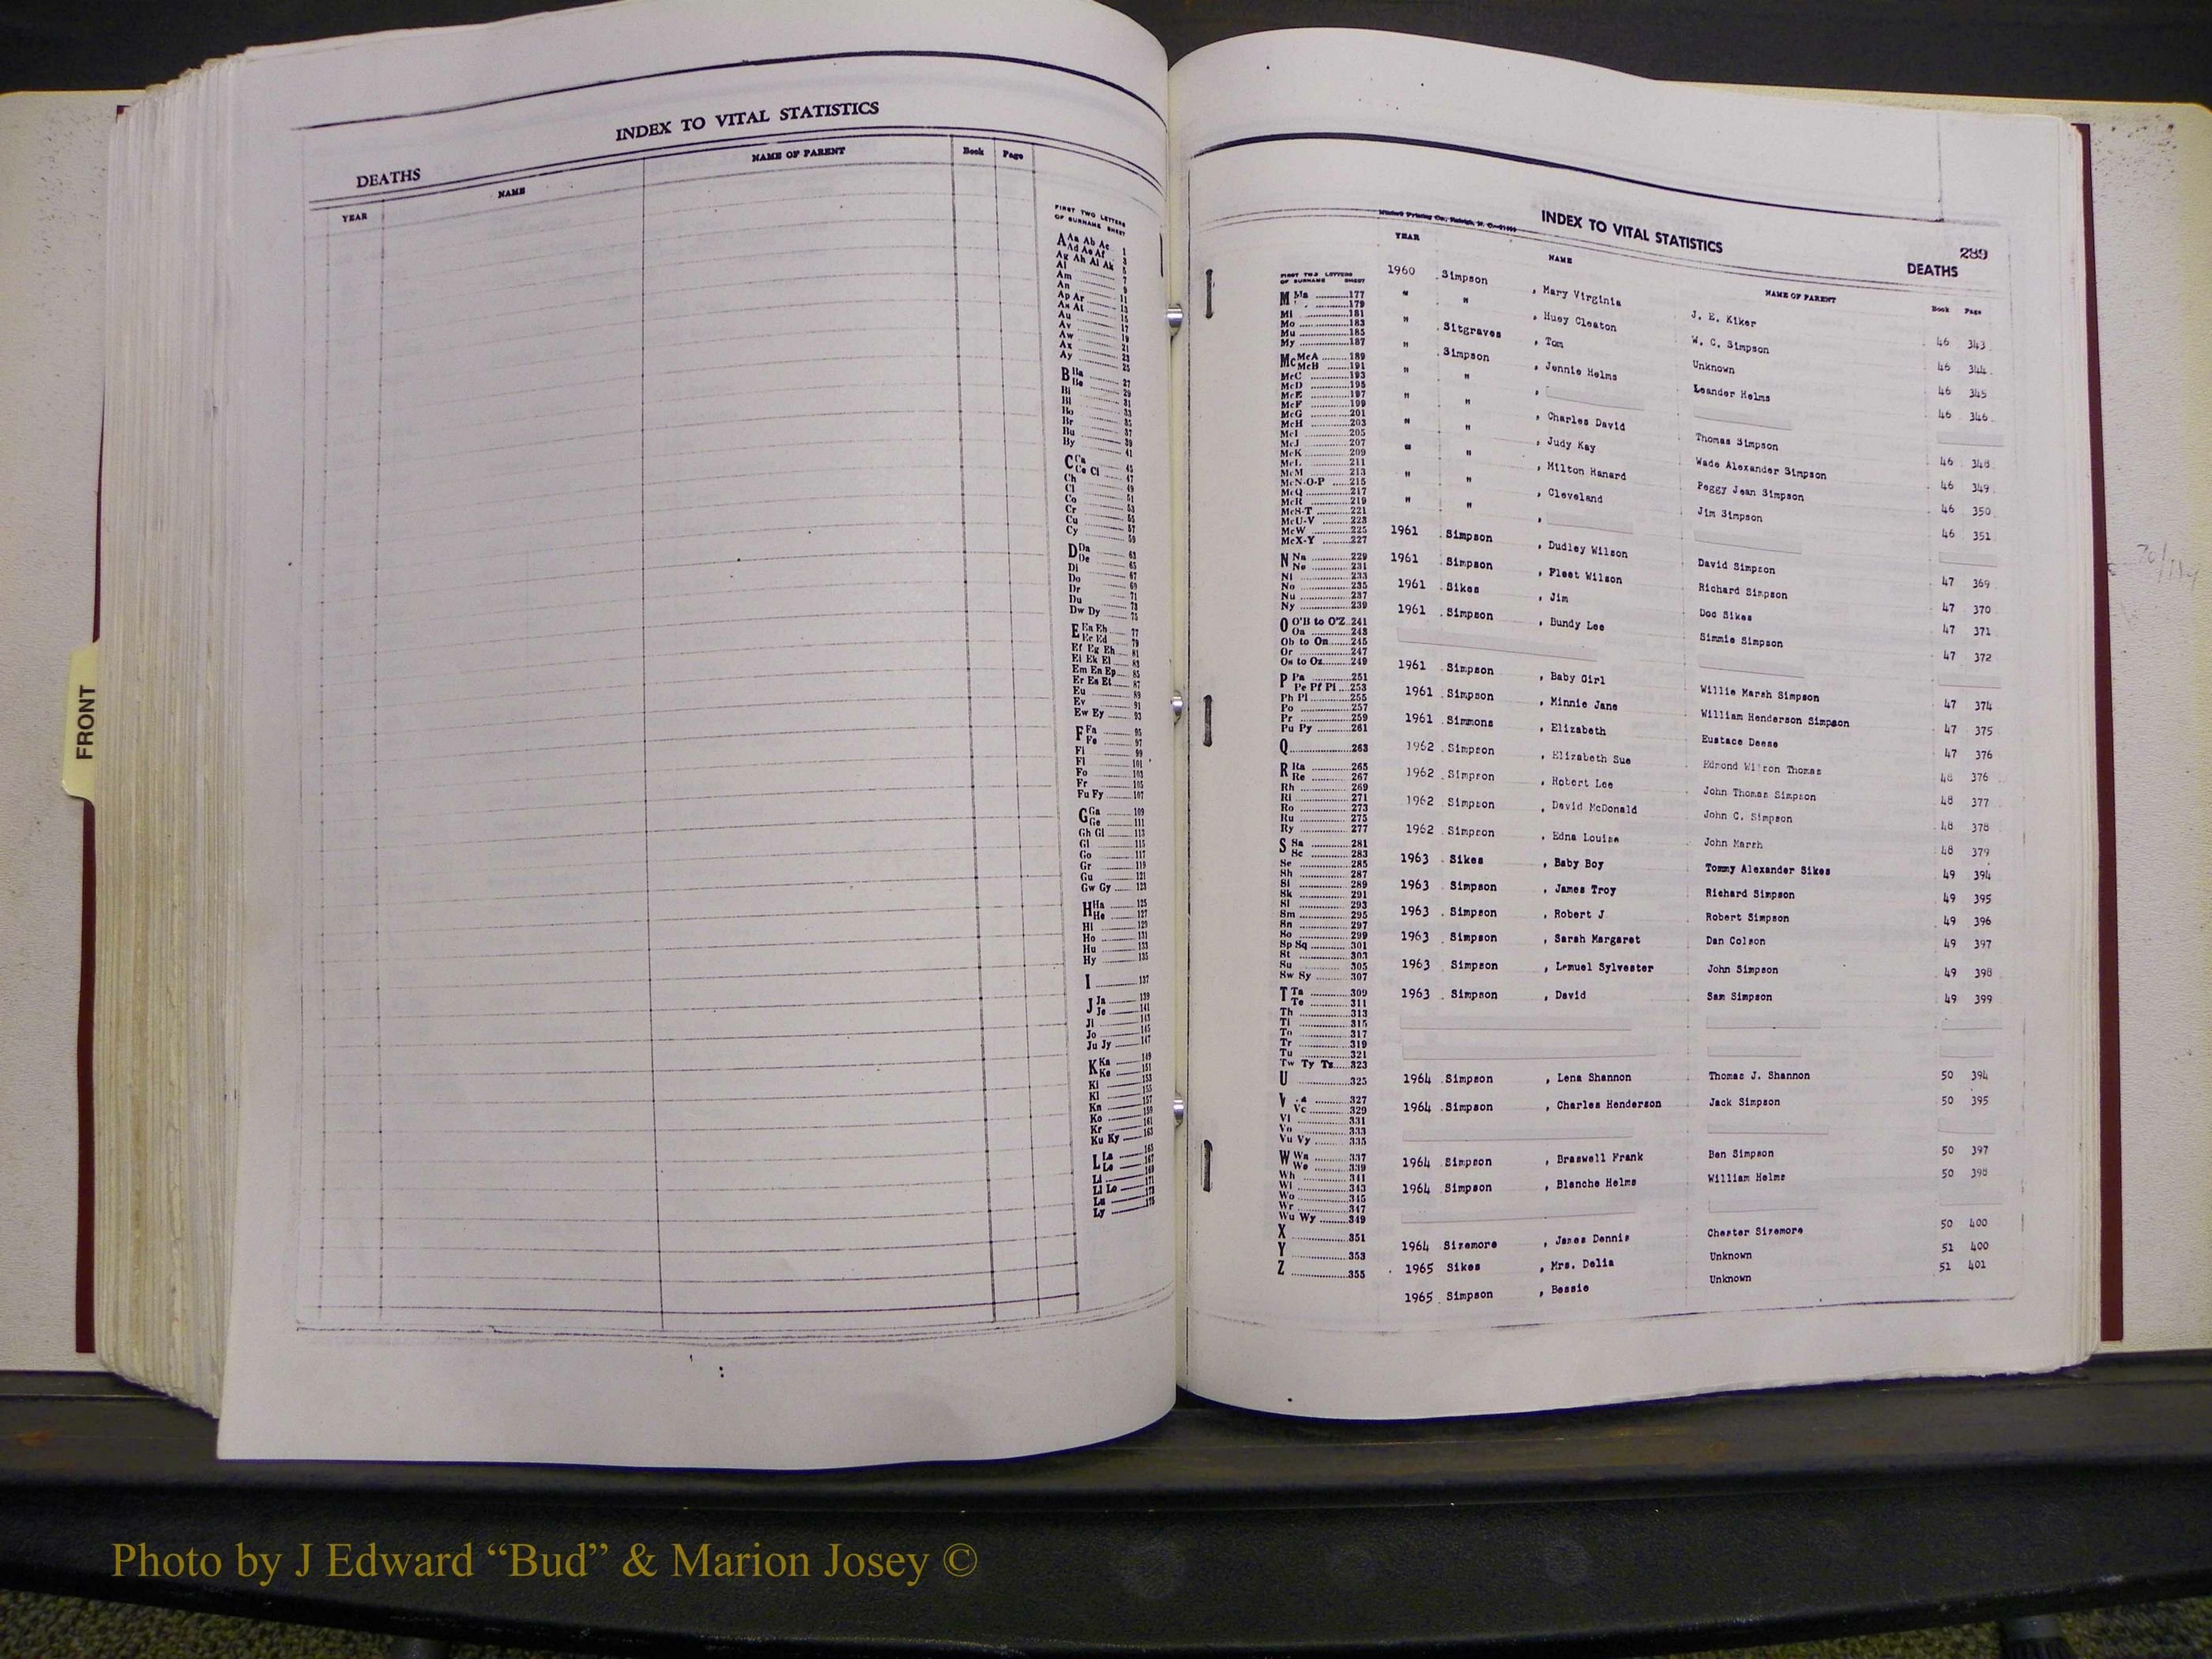 INDEX TO VITAL STATISTICS
DEATHS
YEAR NAME NAME OF PARENT Book Page
FIRST TWO LETTERS
OF SURNAME SHEET
A Aa Ab Ac 1
Ad Ae Af 3
Ag Ah Ai Ak 5
Al 7
Am 9
An 11
Ap Ar 13
As At 15
Au 17
Av 19
Aw 21
Ax 23
Ay 25
B Ba 27
Be 29
Bi 31
Bl 33
Bo 35
Br 37
Bu 39
By 41
C Ca 45
Ce Ci 47
Ch 49
Cl 51
Co 53
Cr 55
Cu 57
Cy 59
D Da 63
De 65
Di 67
Do 69
Dr 71
Du 73
Dw Dy 75
E Ea Eb 77
Ec Ed 79
Ef Eg Eh 81
Ei Ek El 83
Em En Ep 85
Er Es Et 87
Eu 89
Ev 91
Ew Ey 93
F Fa 95
Fe 97
Fi 99
Fl 101
Fo 103
Fr 105
Fu Fy 107
G Ga 109
Ge 111
Gh Gi 113
Gl 115
Go 117
Gr 119
Gu 121
Gw Gy 123
H Ha 125
He 127
Hi 129
Ho 131
Hu 133
Hy 135
I 137
J Ja 139
Je 141
Ji 143
Jo 145
Ju Jy 147
K Ka 149
Ke 151
Ki 153
Kl 155
Kn 157
Ko 159
Kr 161
Ku Ky 163
L La 165
Le 167
Li 169
Ll Lo 171
Lu 173
Ly 175
FRONT
INDEX TO VITAL STATISTICS
289
DEATHS
YEAR NAME NAME OF PARENT Book Page
FIRST TWO LETTERS
OF SURNAME SHEET
M Ma 177
179
Mi 181
Mo 183
Mu 185
My 187
Mc McA 189
McB 191
McC 193
McD 195
McE 197
McF 199
McG 201
McH 203
McI 205
McJ 207
McK 209
McL 211
McM 213
McN-O-P 215
McQ 217
McR 219
McS-T 221
McU-V 223
McW 225
McX-Y 227
N Na 229
Ne 231
Ni 233
No 235
Nu 237
Ny 239
O O'B to O'Z 241
Oa 243
Ob to On 245
Or 247
Os to Oz 249
P Pa 251
Pe Pf Pl 253
Ph Pi 255
Po 257
Pr 259
Pu Py 261
Q 263
R Ra 265
Re 267
Rh 269
Ri 271
Ro 273
Ru 275
Ry 277
S Sa 281
Sc 283
Se 285
Sh 287
Si 289
Sk 291
Sl 293
Sm 295
Sn 297
So 299
Sp Sq 301
St 303
Su 305
Sw Sy 307
T Ta 309
Te 311
Th 313
Ti 315
To 317
Tr 319
Tu 321
Tw Ty Tz 323
U 325
V 327
Ve 329
Vi 331
Vo 333
Vu Vy 335
W Wa 337
We 339
Wh 341
Wi 343
Wo 345
Wr 347
Wu Wy 349
X 351
Y 353
Z 355
1960 Simpson , Mary Virginia J. E. Kiker 46 343
" " , Huey Cleaton W. C. Simpson 46 344
" Sitgraves , Tom Unknown 46 345
" Simpson , Jennie Helms Leander Helms 46 346
" " ,
" " , Charles David Thomas Simpson 46 348
" " , Judy Kay Wade Alexander Simpson 46 349
" " , Milton Hanard Peggy Jean Simpson 46 350
" " , Cleveland Jim Simpson 46 351
" " ,
1961 Simpson , Dudley Wilson David Simpson 47 369
1961 Simpson , Fleet Wilson Richard Simpson 47 370
1961 Sikes , Jim Doc Sikes 47 371
1961 Simpson , Bundy Lee Simmie Simpson 47 372
1961 Simpson , Baby Girl Willie Marsh Simpson 47 374
1961 Simpson , Minnie Jane William Henderson Simpson 47 375
1961 Simmons , Elizabeth Eustace Deese 47 376
1962 Simpson , Elizabeth Sue Edmond Wilson Thomas 48 376
1962 Simpson , Robert Lee John Thomas Simpson 48 377
1962 Simpson , David McDonald John C. Simpson 48 378
1962 Simpson , Edna Louise John Marsh 48 379
1963 Sikes , Baby Boy Tommy Alexander Sikes 49 394
1963 Simpson , James Troy Richard Simpson 49 395
1963 Simpson , Robert J Robert Simpson 49 396
1963 Simpson , Sarah Margaret Dan Colson 49 397
1963 Simpson , Lemuel Sylvester John Simpson 49 398
1963 Simpson , David Sam Simpson 49 399
1964 Simpson , Lena Shannon Thomas J. Shannon 50 394
1964 Simpson , Charles Henderson Jack Simpson 50 395
1964 Simpson , Braswell Frank Ben Simpson 50 397
1964 Simpson , Blanche Helms William Helms 50 398
1964 Sizemore , James Dennis Chester Sizemore 50 400
1965 Sikes , Mrs. Delia Unknown 51 400
1965 Simpson , Bessie Unknown 51 401
Photo by J Edward “Bud” & Marion Josey ©